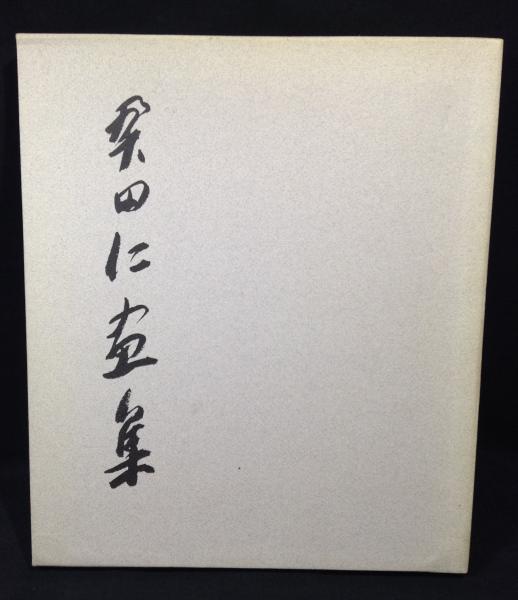 奥田仁画集